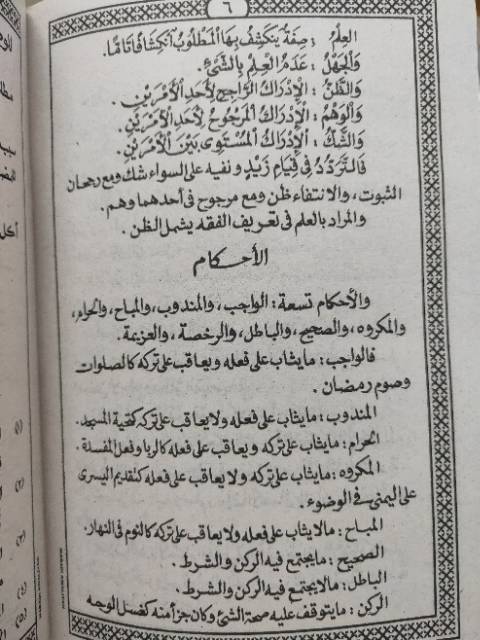 ٦
العِلْمُ : صِفَةٌ يَنْكَشِفُ بِهَا الْمَطْلُوبُ انْكِشَافًا تَامًّا.
وَالْجَهْلُ : عَدَمُ الْعِلْمِ بِالشَّيْءِ.
وَالظَّنُّ : الْإِدْرَاكُ الرَّاجِحُ لِأَحَدِ الْأَمْرَيْنِ.
وَالْوَهْمُ : الْإِدْرَاكُ الْمَرْجُوحُ لِأَحَدِ الْأَمْرَيْنِ.
وَالشَّكُّ : الْإِدْرَاكُ الْمُسْتَوِى بَيْنَ الْأَمْرَيْنِ.
فَالتَّرَدُّدُ فِى قِيَامِ زَيْدٍ ونفيه على السواء شك ومع رجحان
الثبوت، والانتفاء ظن ومع مرجوح فى أحدهما وهم.
والمراد بالعلم فى تعريف الفقه يشمل الظن.
الأحكام
والأحكام تسعة : الواجب، والمندوب، والمباح، والحرام،
والمكروه، والصحيح، والباطل، والرخصة، والعزيمة.
فالواجب : مايثاب على فعله ويعاقب على تركه كالصلوات
وصوم رمضان.
المندوب : مايثاب على فعله ولايعاقب على تركه كتحية المسجد.
الحرام : مايثاب على تركه ويعاقب على فعله كالربا وفعل المفسدة.
المكروه : مايثاب على تركه ولايعاقب على فعله كتقديم اليسرى
على اليمنى فى الوضوء.
المباح : مالايثاب على فعله ولايعاقب على تركه كالنوم فى النهار.
الصحيح : مايجتمع فيه الركن والشرط.
الباطل : مالايجتمع فيه الركن والشرط.
الركن : مايتوقف عليه صحة الشئ وكان جزأ منه كغسل الوجه